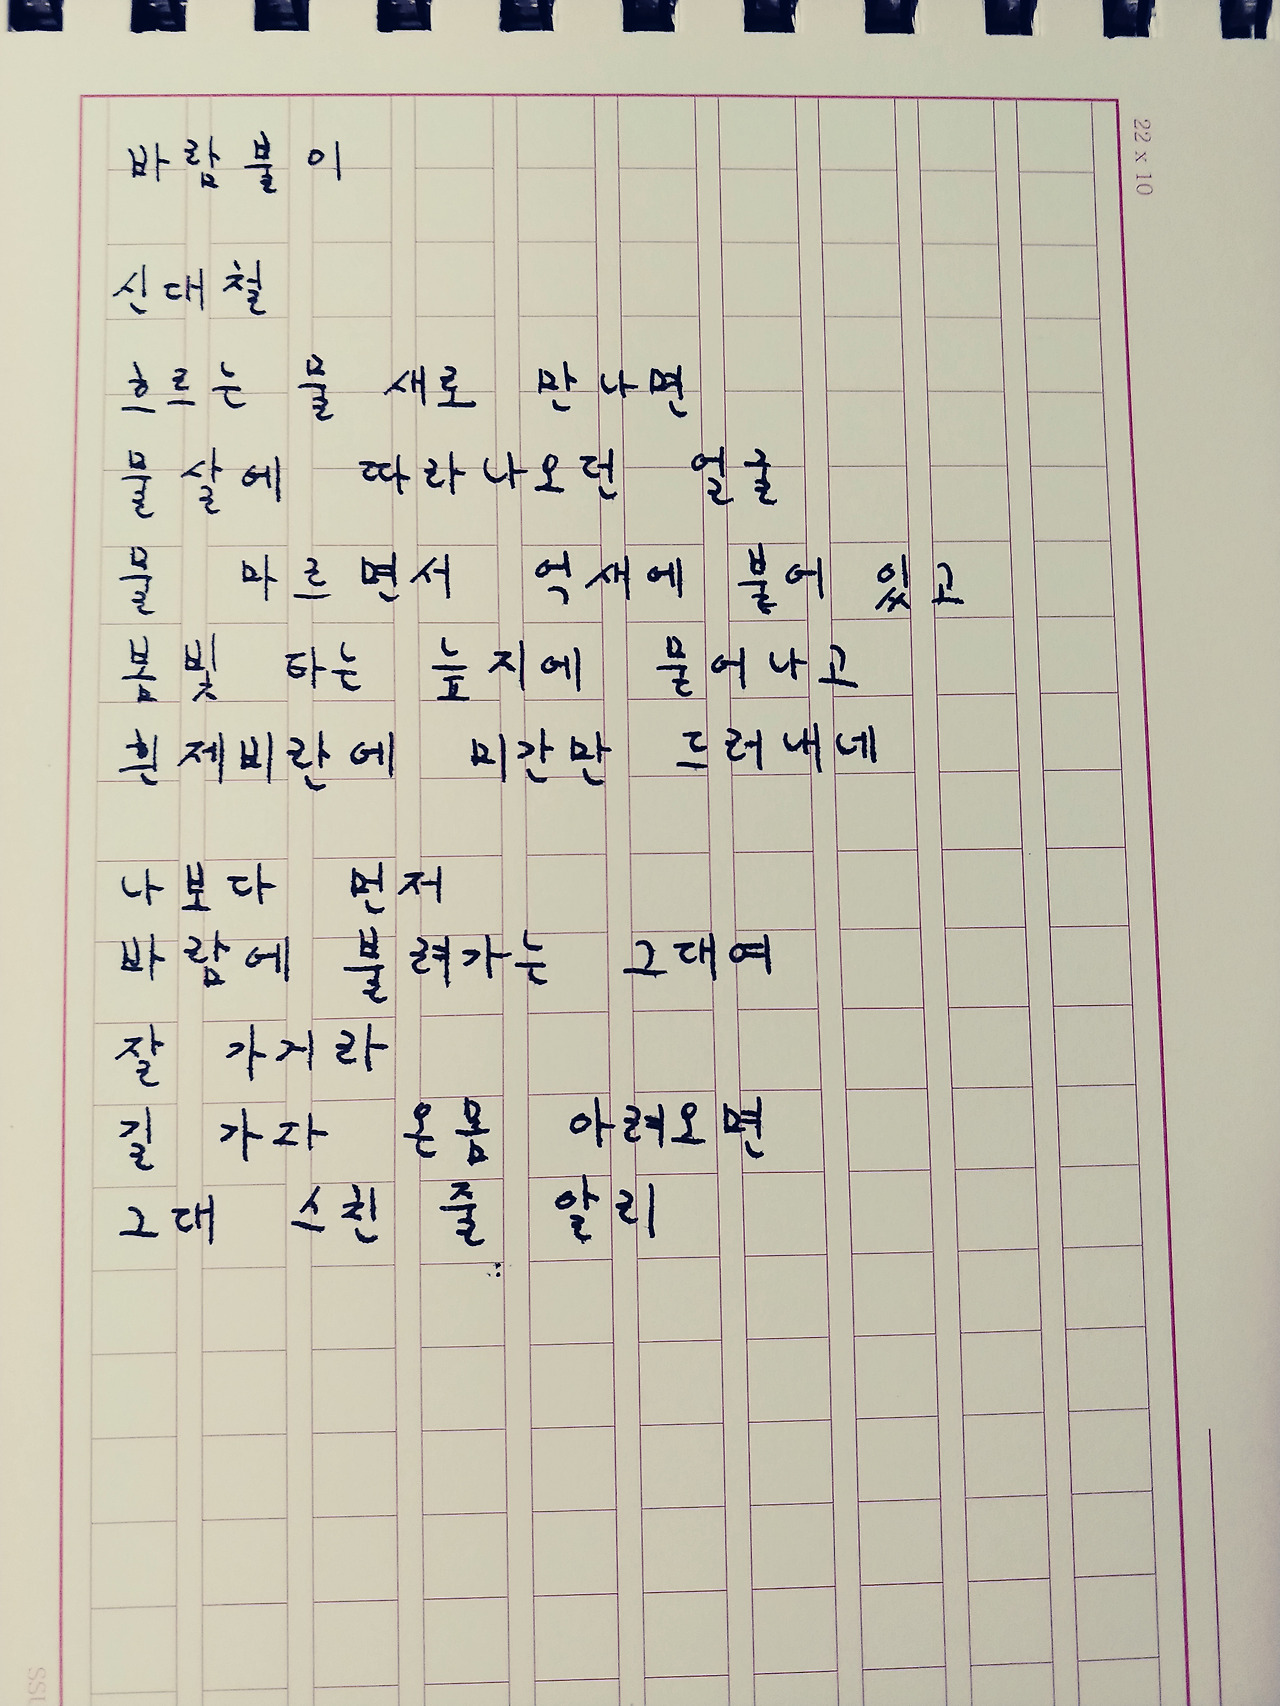 바람불이
신대철
흐르는 물 새로 만나면
물살에 따라나오던 얼굴
물 마르면서 억새에 붙어 있고
봄빛 타는 늪지에 묻어나고
흰제비란에 미간만 드러내네
나보다 먼저
바람에 불려가는 그대여
잘 가거라
길 가다 온몸 아려오면
그대 스친 줄 알리
22 x 10